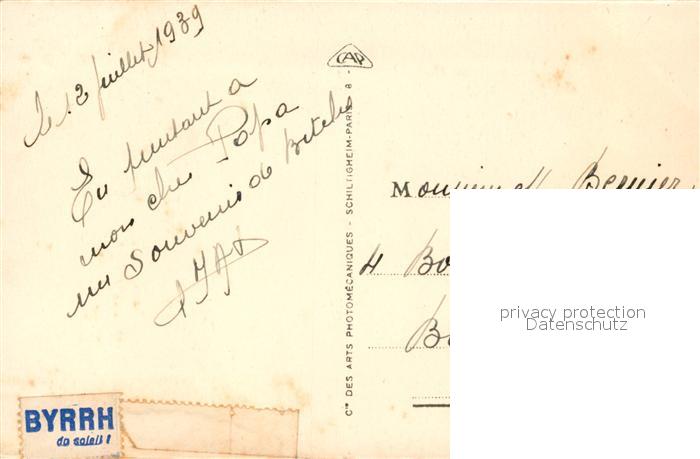 le 12 juillet 1939
En pensant a
mon cher Papa
un Souvenir de Bitche
CAP
Cie DES ARTS PHOTOMÉCANIQUES - SCHILTIGHEIM-PARIS 8 -
Monsieur M Bernier
4 Bo
privacy protection
Datenschutz
BYRRH
du soleil !